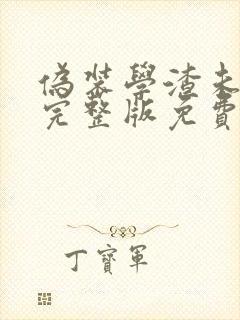 偽裝學渣未
完整版免費
丁寶軍